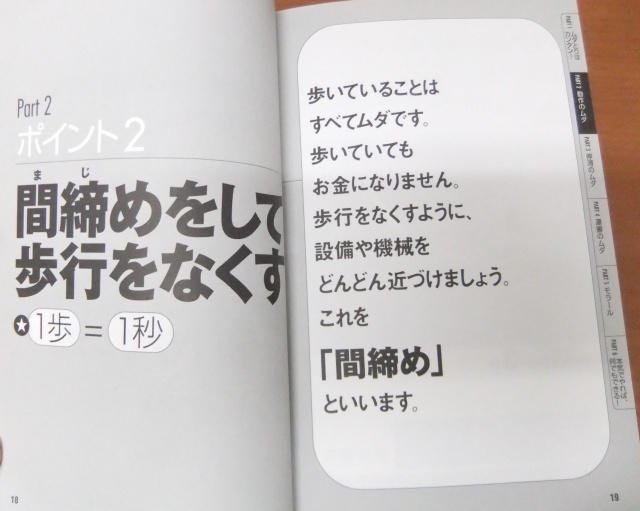 Part 2
ポイント2
まじ
間締めをして
歩行をなくす
★1歩=1秒
18
歩いていることは
すべてムダです。
歩いていても
お金になりません。
歩行をなくすように、
設備や機械を
どんどん近づけましょう。
これを
「間締め」
といいます。
PART 2 動作のムダ
PART 5 モラール
PART 6 本気でやれば、
何でもできる!
19